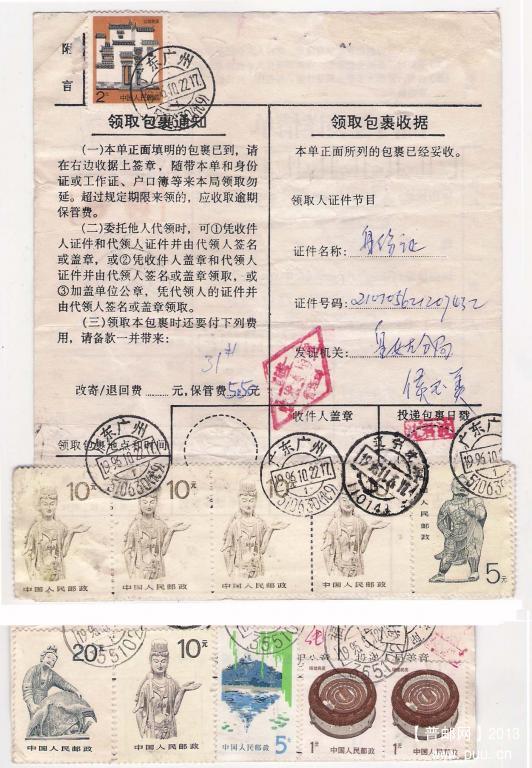 附
言
2元
中国人民邮政
广东广州
1996.10.22.17
510630(代办)
领取包裹通知
(一)本单正面填明的包裹已到,请
在右边收据上签章,随带本单和身份
证或工作证、户口簿等来本局领取勿
延。超过规定期限来领的,应收取逾期
保管费。
(二)委托他人代领时,可①凭收件
人证件和代领人证件并由代领人签名
或盖章,或②凭收件人盖章和代领人
证件并由代领人签名或盖章领取,或
③加盖单位公章,凭代领人的证件并
由代领人签名或盖章领取。
(三)领取本包裹时还要付下列费
用,请备款一并带来:
改寄/退回费 元,保管费5.50元
领取包裹地点和时间
领取包裹收据
本单正面所列的包裹已经妥收。
领取人证件节目
证件名称: 身份证
证件号码:
发证机关:
收件人盖章
投递包裹日戳
广东广州
1996.10.22.17
510630(代办)
广东广州
1996.10.22.17
510630(代办)
10元
中国人民邮政
10元
中国人民邮政
10元
中国人民邮政
中国人民邮政
5元
中国人民邮政
20元
中国人民邮政
10元
中国人民邮政
5元
中国人民邮政
1元
中国人民邮政
1元
中国人民邮政
【普邮网】2013
www.puu.cn